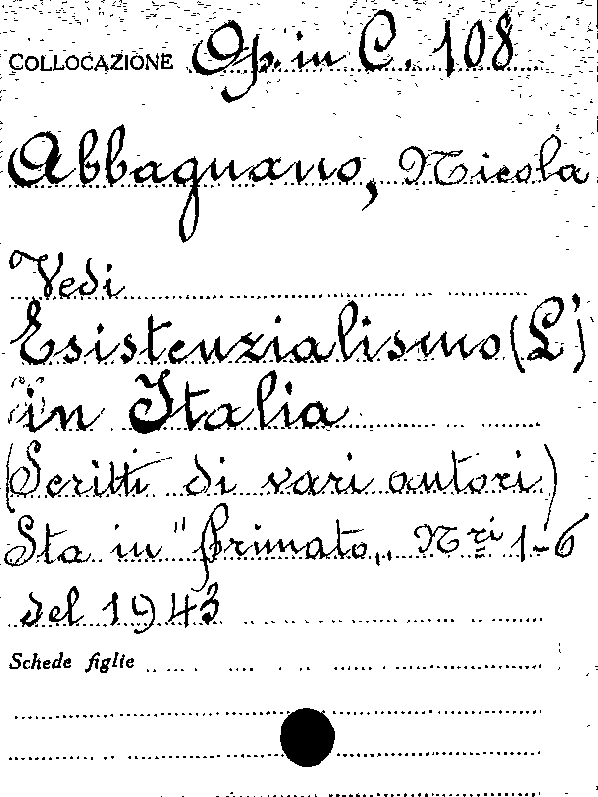 COLLOCAZIONE Op. in C. 108
Abbagnano, Nicola
Vedi
Esistenzialismo (L')
in Italia
(Scritti di vari autori)
Sta in "Primato„ Nri 1-6
del 1943
Schede figlie